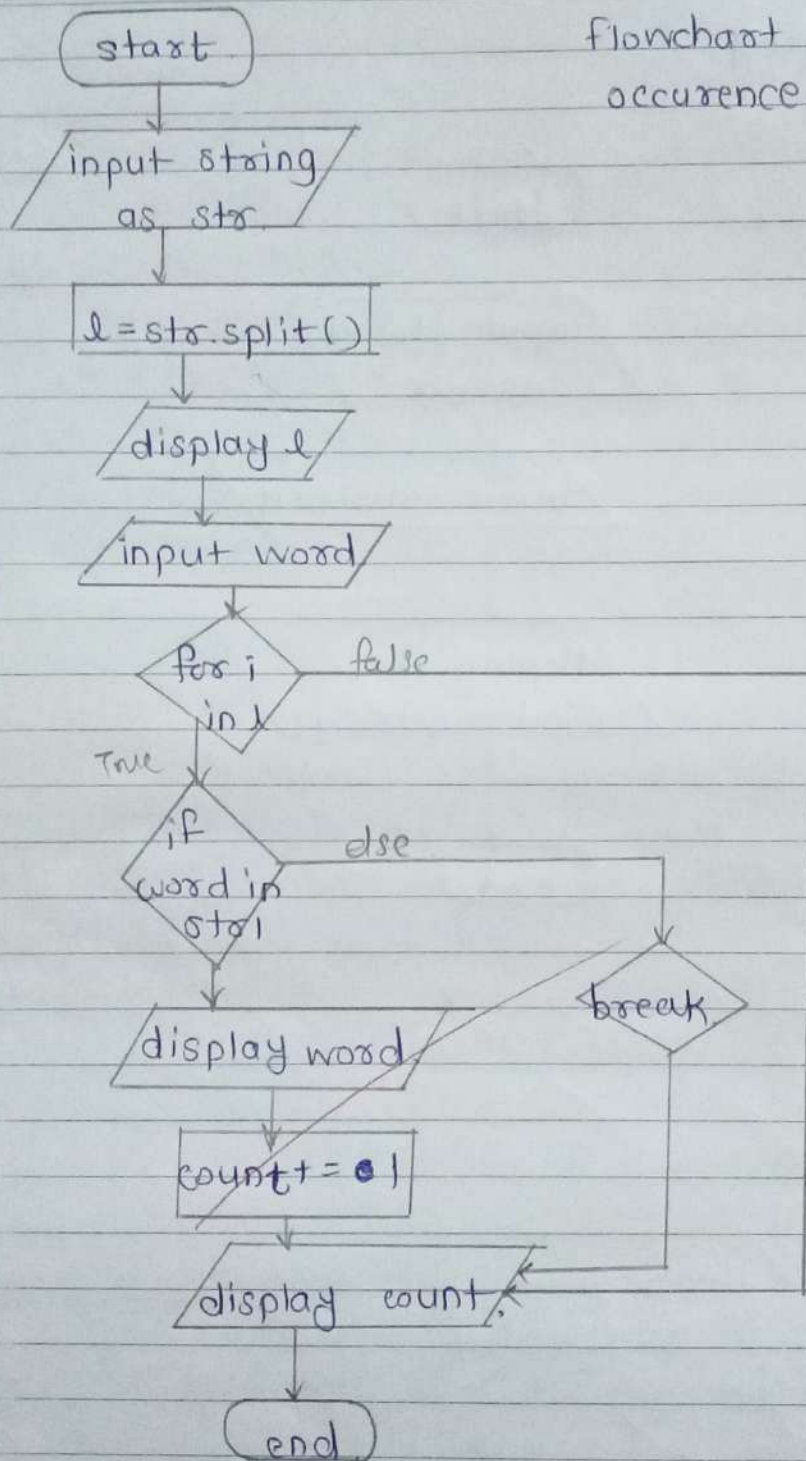 flowchart
occurence
start
input string
as str
l = str.split()
display l
input word
for i
in l
false
True
if
word in
str1
else
break
display word
count + = 1
display count.
end